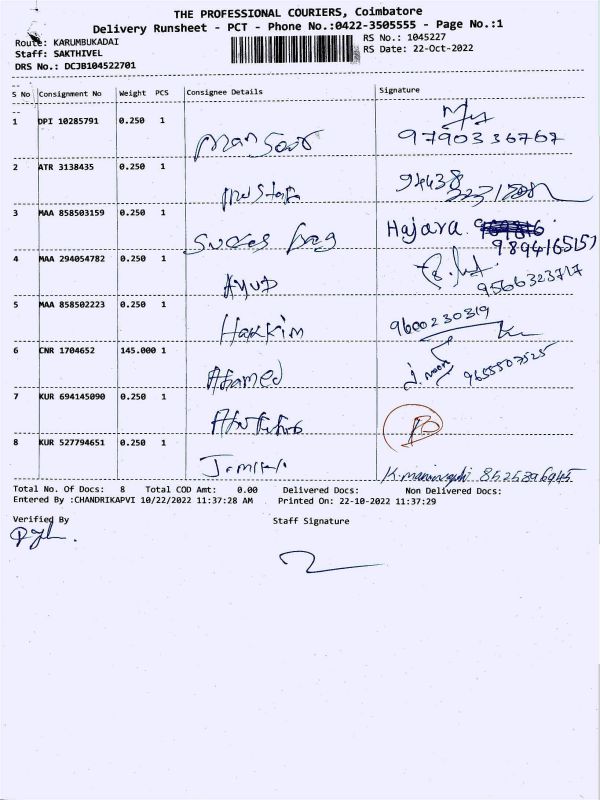 THE PROFESSIONAL COURIERS, Coimbatore
Delivery Runsheet - PCT - Phone No.:0422-3505555 - Page No.:1
Route: KARUMBUKADAI
RS No.: 1045227
Staff: SAKTHIVEL
RS Date: 22-Oct-2022
DRS No.: DCJB104522701
S No Consignment No Weight PCS Consignee Details Signature
1 DPI 10285791 0.250 1
Mansoor 9790336767
2 ATR 3138435 0.250 1
94438
3 MAA 858503159 0.250 1
Hajara
9894165151
4 MAA 294054782 0.250 1
Ayub 9566323717
5 MAA 858502223 0.250 1
Hakkim 9600230319
6 CNR 1704652 145.000 1
Ahamed J. noor 9655507525
7 KUR 694145090 0.250 1
8 KUR 527794651 0.250 1
8525896945
Total No. Of Docs: 8 Total COD Amt: 0.00 Delivered Docs: Non Delivered Docs:
Entered By :CHANDRIKAPVI 10/22/2022 11:37:28 AM Printed On: 22-10-2022 11:37:29
Verified By Staff Signature